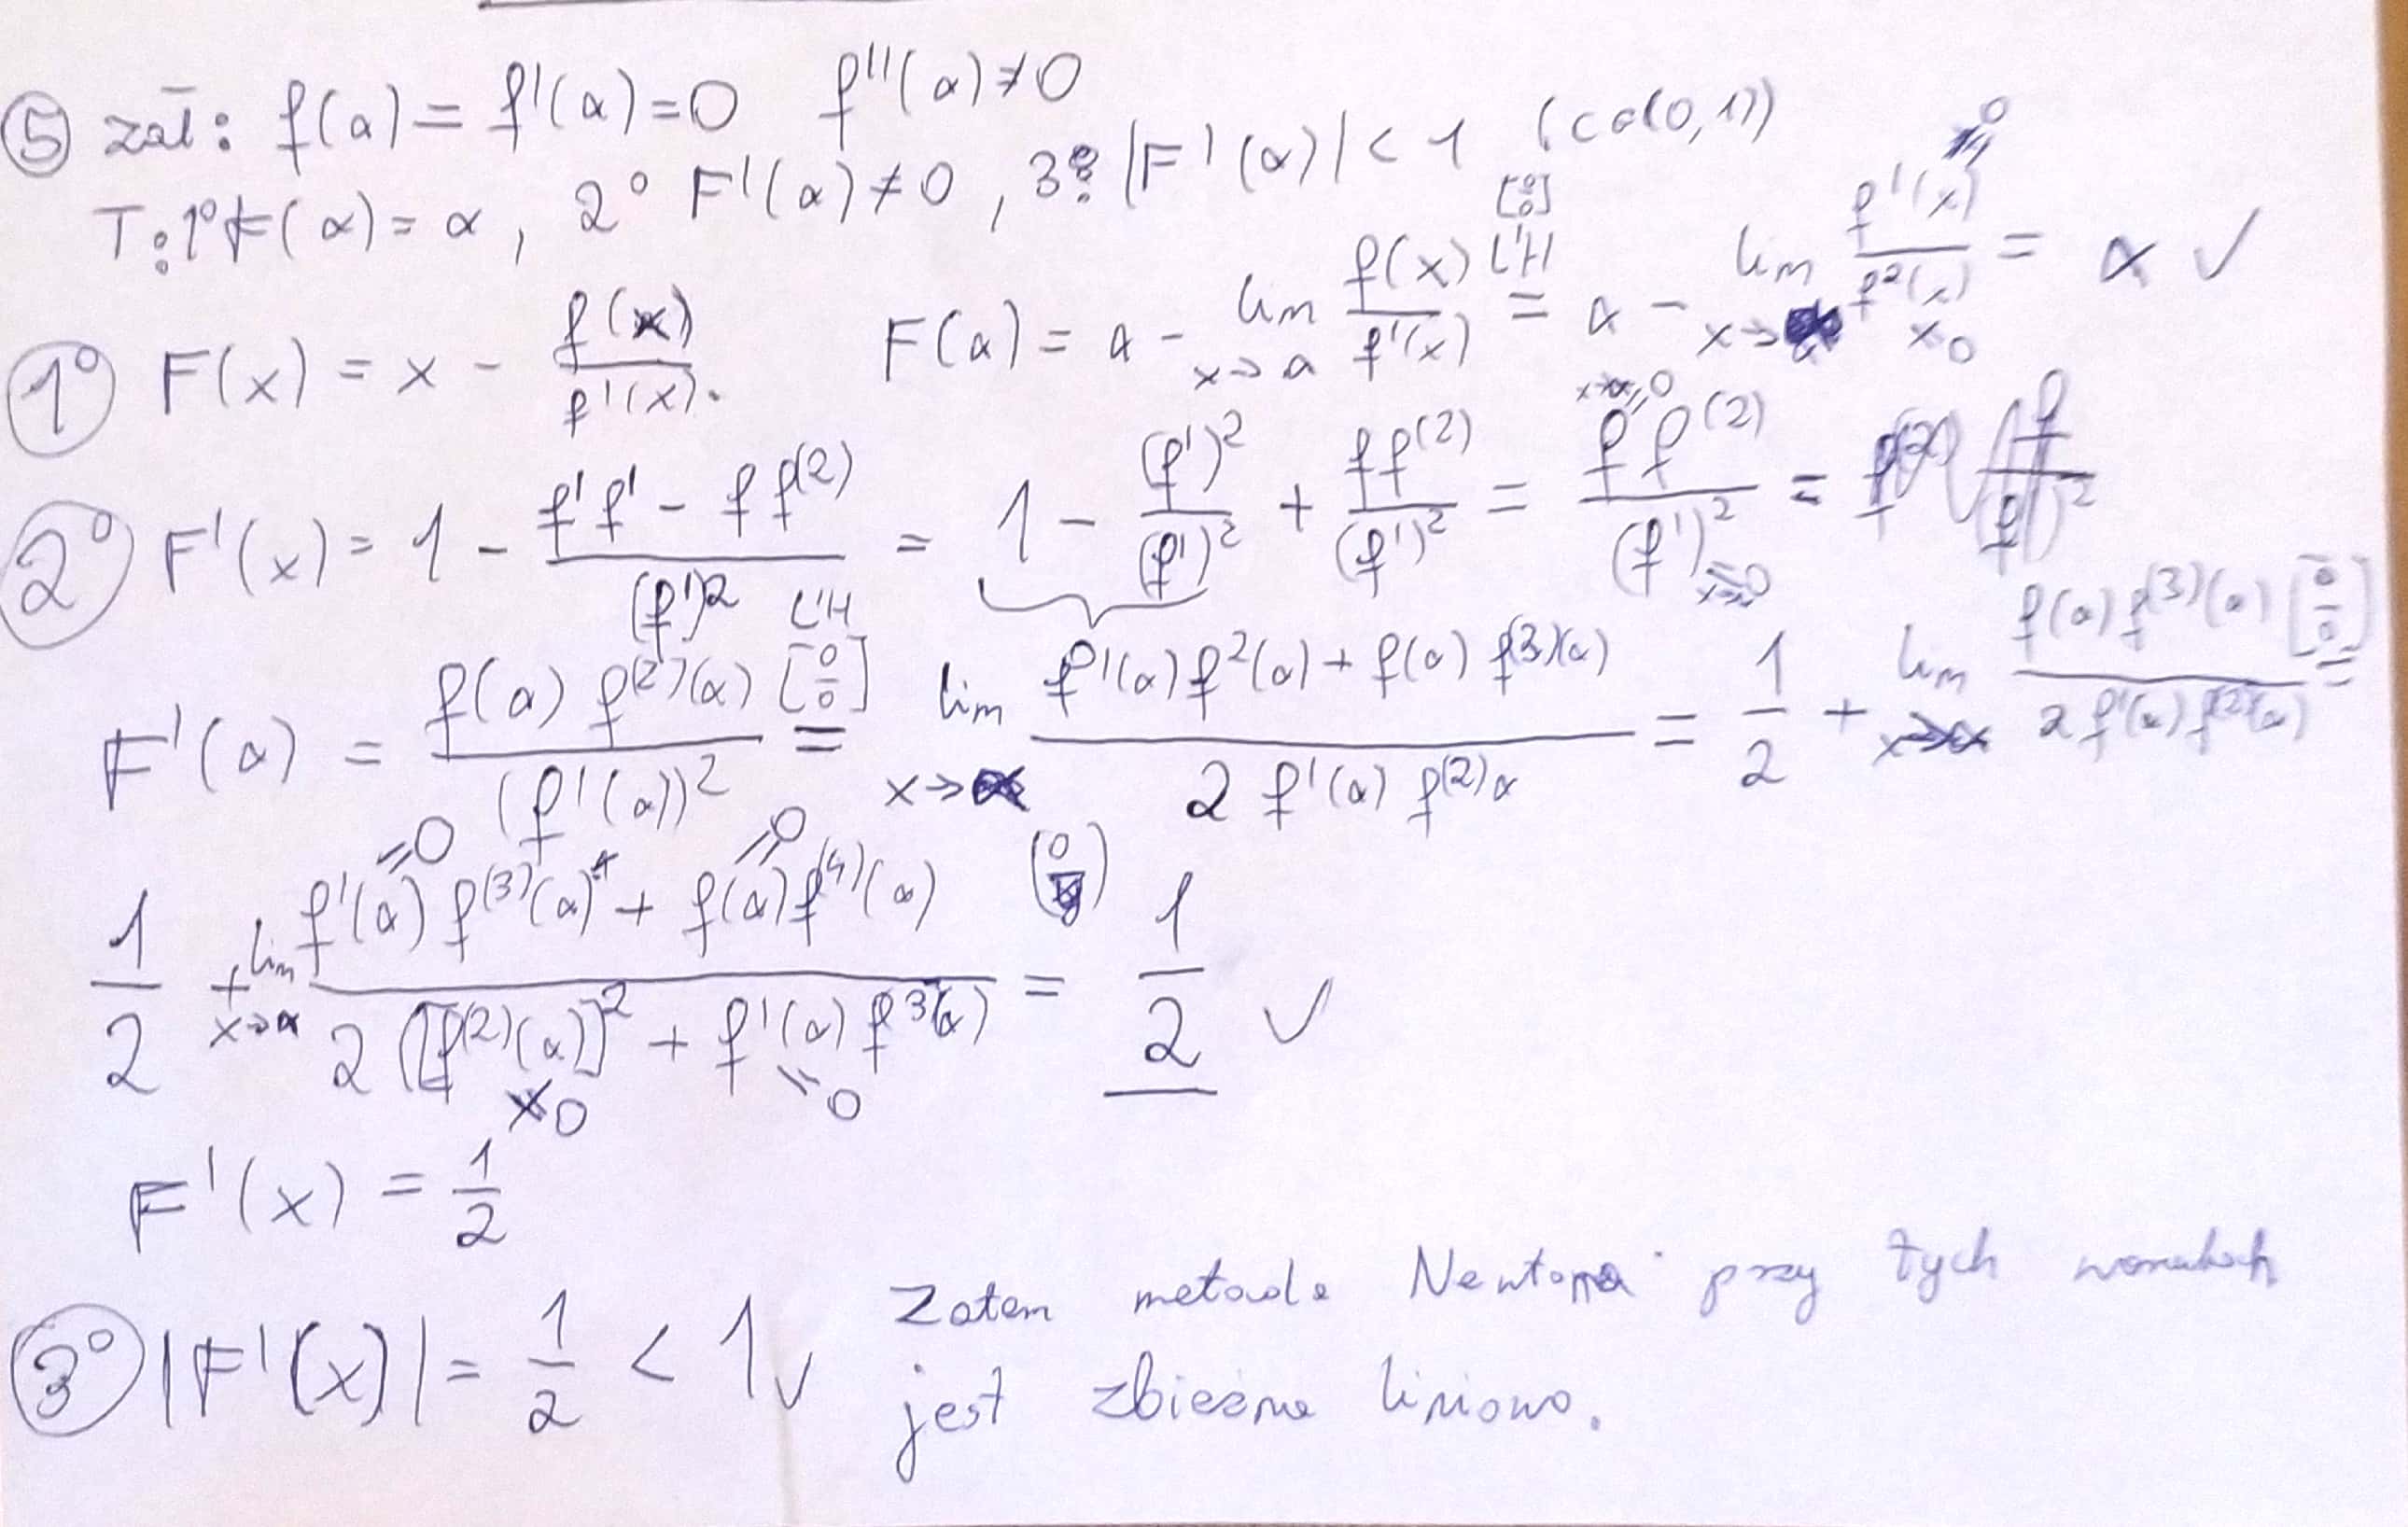 ⑤ zał: f(α) = f'(α)=0 f''(α)≠0
T: 1° F(α) = α, 2° F'(α) ≠ 0, 3°: |F'(α)| < 1 (C∈(0,1))
1° F(x) = x - f(x)/f'(x). F(α) = α - lim x→α f(x)/f'(x) [0/0] L'H = α - lim x→α f'(x) =0 / f²(x) ≠0 = α ✓
2° F'(x) = 1 - (f'f' - f f⁽²⁾)/(f')² = 1 - (f')²/(f')² + f f⁽²⁾/(f')² = f f⁽²⁾/(f')² =
F'(α) = f(α) f⁽²⁾(α)/(f'(α))² L'H [0/0] = lim x→α (f'(α) f²(α) + f(α) f⁽³⁾(α))/(2 f'(α) f⁽²⁾α) = 1/2 + lim x→α f(α) f⁽³⁾(α)/(2 f'(α) f⁽²⁾(α)) [0/0] =
1/2 + lim x→α (f'(α) =0 f⁽³⁾(α) + f(α) =0 f⁽⁴⁾(α))/(2 [f⁽²⁾(α)]² ≠0 + f'(α) =0 f³(α)) = 1/2 ✓
F'(x) = 1/2
3° |F'(x)| = 1/2 < 1 ✓ Zatem metoda Newtona przy tych warunkach
jest zbieżna liniowo.